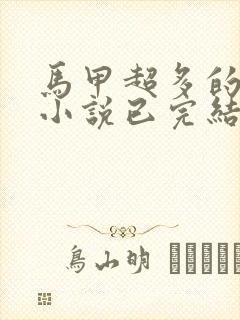 馬甲超多的
小說已完結
鳥山明